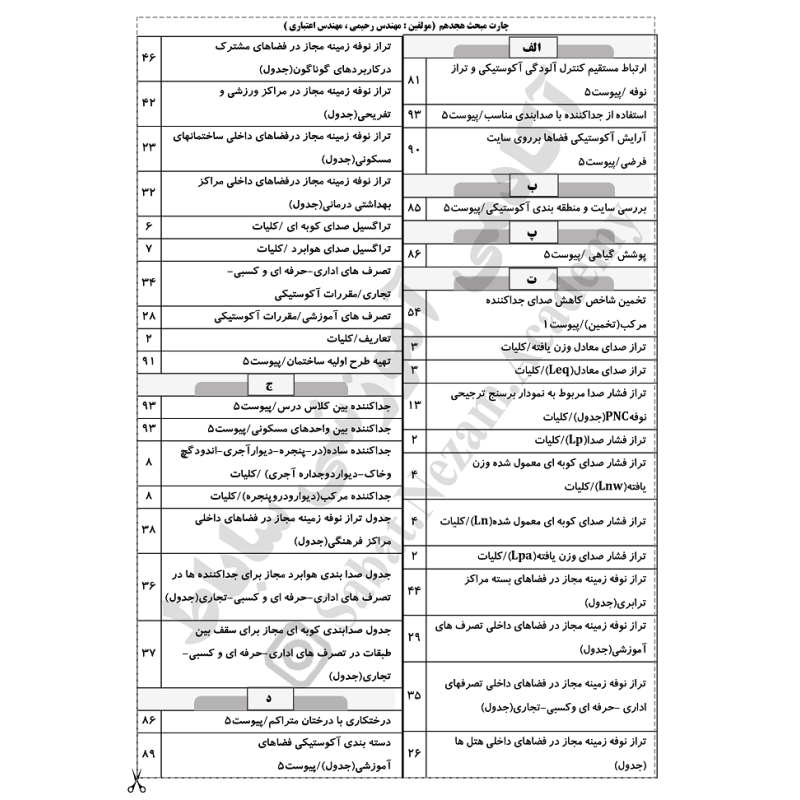 چارت مبحث هجدهم (مولفین : مهندس رحیمی ، مهندس اعتباری )
الف
ارتباط مستقیم کنترل آلودگی آکوستیکی و تراز
نوفه /پیوست۵
۸۱
استفاده از جداکننده با صدابندی مناسب/پیوست۵
۹۳
آرایش آکوستیکی فضاها برروی سایت
فرضی/پیوست۵
۹۰
ب
بررسی سایت و منطقه بندی آکوستیکی/پیوست۵
۸۵
پ
پوشش گیاهی /پیوست۵
۸۶
ت
تخمین شاخص کاهش صدای جداکننده
مرکب(تخمین)/پیوست۱
۵۴
تراز صدای معادل وزن یافته/کلیات
۳
تراز صدای معادل(Leq)/کلیات
۳
تراز فشار صدا مربوط به نمودار برسنج ترجیحی
نوفهPNC(جدول)/کلیات
۱۳
تراز فشار صدا(Lp)/کلیات
۲
تراز فشار صدای کوبه ای معمول شده وزن
یافته(Lnw)/کلیات
۴
تراز فشار صدای کوبه ای معمول شده(Ln)/کلیات
۴
تراز فشار صدای وزن یافته(Lpa)/کلیات
۲
تراز نوفه زمینه مجاز در فضاهای بسته مراکز
ترابری(جدول)
۴۴
تراز نوفه زمینه مجاز در فضاهای داخلی تصرف های
آموزشی(جدول)
۲۹
تراز نوفه زمینه مجاز در فضاهای داخلی تصرفهای
اداری -حرفه ای وکسبی-تجاری(جدول)
۳۵
تراز نوفه زمینه مجاز در فضاهای داخلی هتل ها
(جدول)
۲۶
تراز نوفه زمینه مجاز در فضاهای مشترک
درکاربردهای گوناگون(جدول)
۴۶
تراز نوفه زمینه مجاز در مراکز ورزشی و
تفریحی(جدول)
۴۲
تراز نوفه زمینه مجاز درفضاهای داخلی ساختمانهای
مسکونی(جدول)
۲۳
تراز نوفه زمینه مجاز درفضاهای داخلی مراکز
بهداشتی درمانی(جدول)
۳۲
تراگسیل صدای کوبه ای /کلیات
۶
تراگسیل صدای هوابرد /کلیات
۷
تصرف های اداری-حرفه ای و کسبی-
تجاری/مقررات آکوستیکی
۳۴
تصرف های آموزشی/مقررات آکوستیکی
۲۸
تعاریف/کلیات
۲
تهیه طرح اولیه ساختمان/پیوست۵
۹۱
ج
جداکننده بین کلاس درس/پیوست۵
۹۳
جداکننده بین واحدهای مسکونی/پیوست۵
۹۳
جداکننده ساده(در-پنجره-دیوارآجری-اندودگچ
وخاک-دیواردوجداره آجری) /کلیات
۸
جداکننده مرکب(دیوارودروپنجره)/کلیات
۸
جدول تراز نوفه زمینه مجاز در فضاهای داخلی
مراکز فرهنگی(جدول)
۳۸
جدول صدا بندی هوابرد مجاز برای جداکننده ها در
تصرف های اداری-حرفه ای و کسبی-تجاری(جدول)
۳۶
جدول صدابندی کوبه ای مجاز برای سقف بین
طبقات در تصرف های اداری-حرفه ای و کسبی-
تجاری(جدول)
۳۷
د
درختکاری با درختان متراکم/پیوست۵
۸۶
دسته بندی آکوستیکی فضاهای
آموزشی(جدول)/پیوست۵
۸۹
آکادمی آموزشی ساباط
Sabat.Nezam.Academy